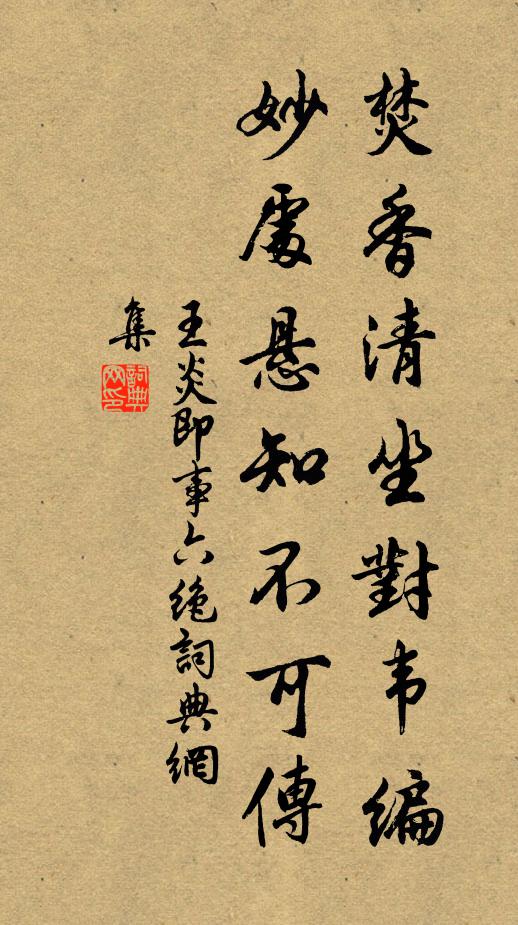 焚香清坐對韦编
妙處悬知不可傳
王炎即事六绝詞典網
集
詞典網印